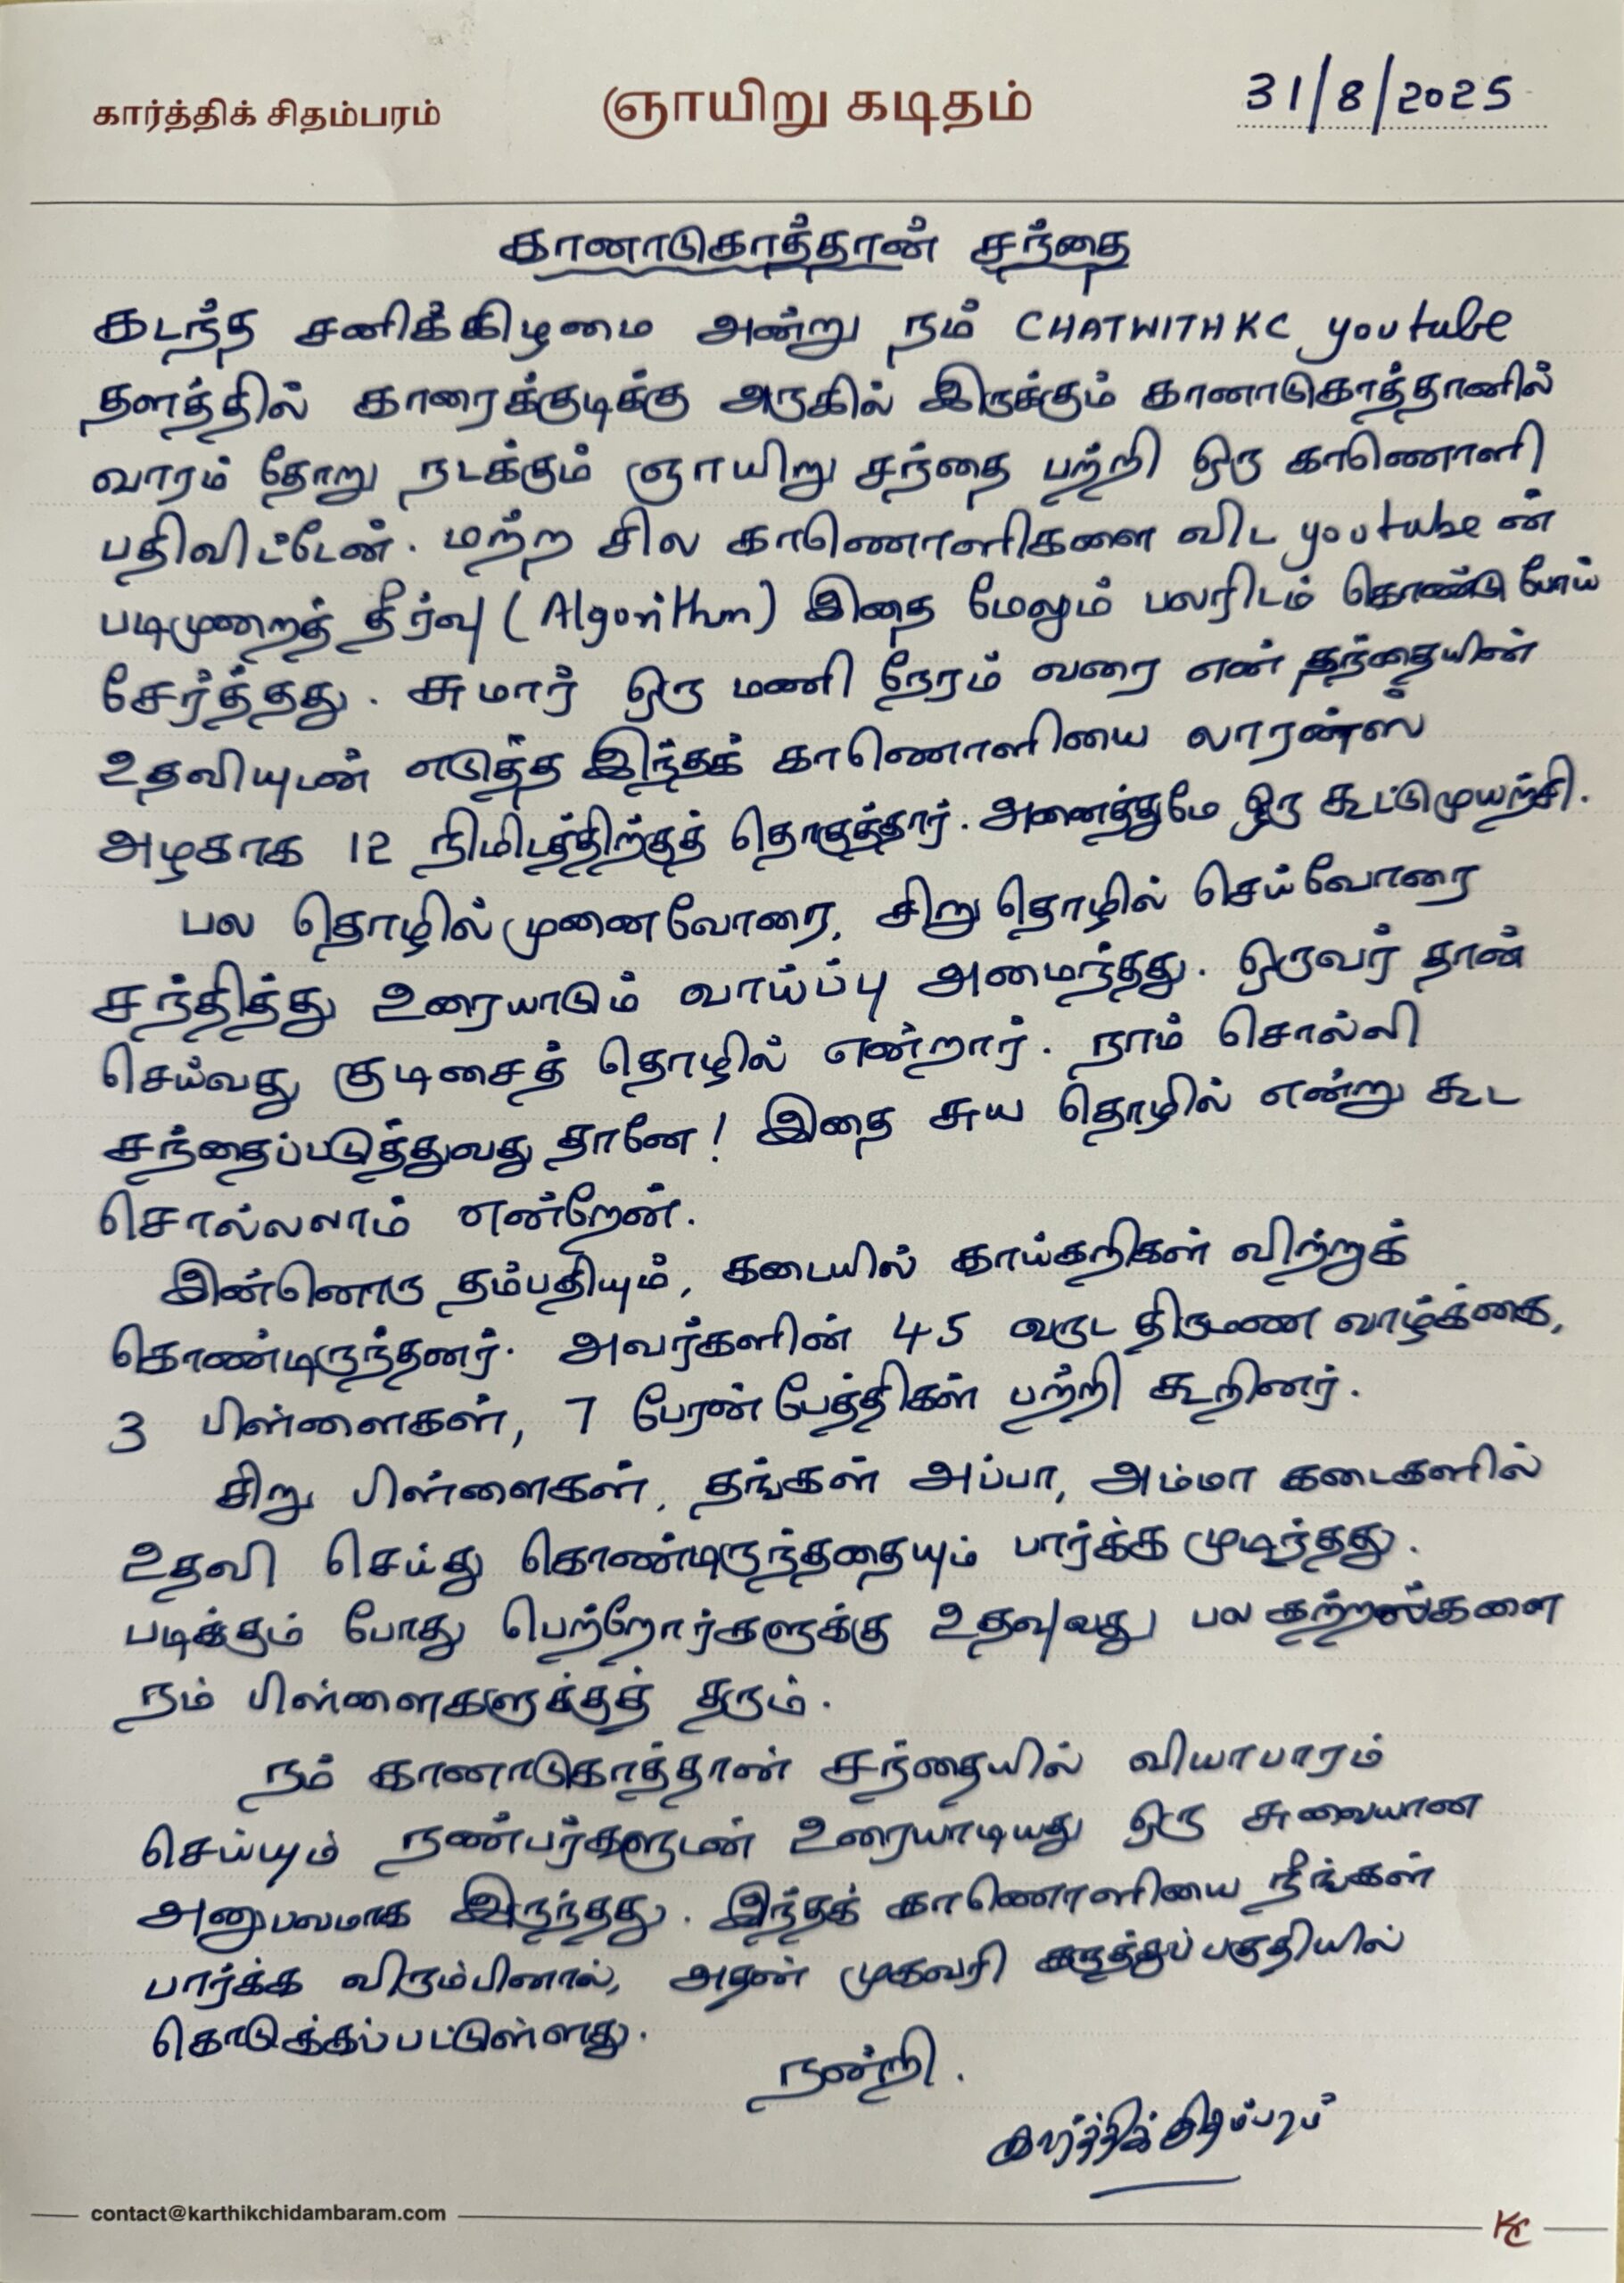 கார்த்திக் சிதம்பரம்
ஞாயிறு கடிதம்
31/8/2025
கானாடுகாத்தான் சந்தை
கடந்த சனிக்கிழமை அன்று நம் CHATWITHKC youtube
தளத்தில் காரைக்குடிக்கு அருகில் இருக்கும் கானாடுகாத்தானில்
வாரம் தோறு நடக்கும் ஞாயிறு சந்தை பற்றி ஒரு காணொளி
பதிவிட்டேன். மற்ற சில காணொளிகளை விட youtube ன்
படிமுறைத் தீர்வு (Algorithm) இதை மேலும் பலரிடம் கொண்டு போய்
சேர்த்தது. சுமார் ஒரு மணி நேரம் வரை என் தந்தையின்
உதவியுடன் எடுத்த இந்தக் காணொளியை லாரன்ஸ்
அழகாக 12 நிமிடத்திற்குத் தொகுத்தார். அனைத்துமே ஒரு கூட்டுமுயற்சி.
பல தொழில்முனைவோரை, சிறு தொழில் செய்வோரை
சந்தித்து உரையாடும் வாய்ப்பு அமைந்தது. ஒருவர் தான்
செய்வது குடிசைத் தொழில் என்றார். நாம் சொல்லி
சந்தைப்படுத்துவது தானே! இதை சுய தொழில் என்று கூட
சொல்லலாம் என்றேன்.
இன்னொரு தம்பதியும், கடையில் காய்கறிகள் விற்றுக்
கொண்டிருந்தனர். அவர்களின் 45 வருட திருமண வாழ்க்கை,
3 பிள்ளைகள், 7 பேரன் பேத்திகள் பற்றி கூறினர்.
சிறு பிள்ளைகள், தங்கள் அப்பா, அம்மா கடைகளில்
உதவி செய்து கொண்டிருந்ததையும் பார்க்க முடிந்தது.
படிக்கும் போது பெற்றோர்களுக்கு உதவுவது பல கற்றல்களை
நம் பிள்ளைகளுக்குத் தரும்.
நம் கானாடுகாத்தான் சந்தையில் வியாபாரம்
செய்யும் நண்பர்களுடன் உரையாடியது ஒரு சுவையான
அனுபவமாக இருந்தது. இந்தக் காணொளியை நீங்கள்
பார்க்க விரும்பினால், அதன் முகவரி கருத்துப் பகுதியில்
கொடுக்கப்பட்டுள்ளது.
நன்றி.
கார்த்திக் சிதம்பரம்
contact@karthikchidambaram.com
KC